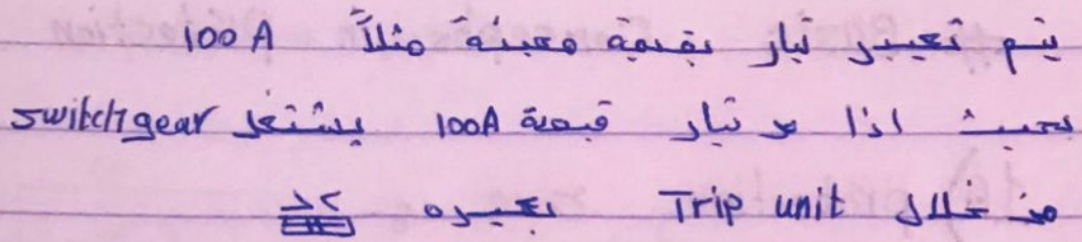 يتم تعيير تيار بقيمة معينة مثلاً 100 A
بحيث اذا مر تيار قيمة 100A يشتغل switchgear
من خلال Trip unit بعيره